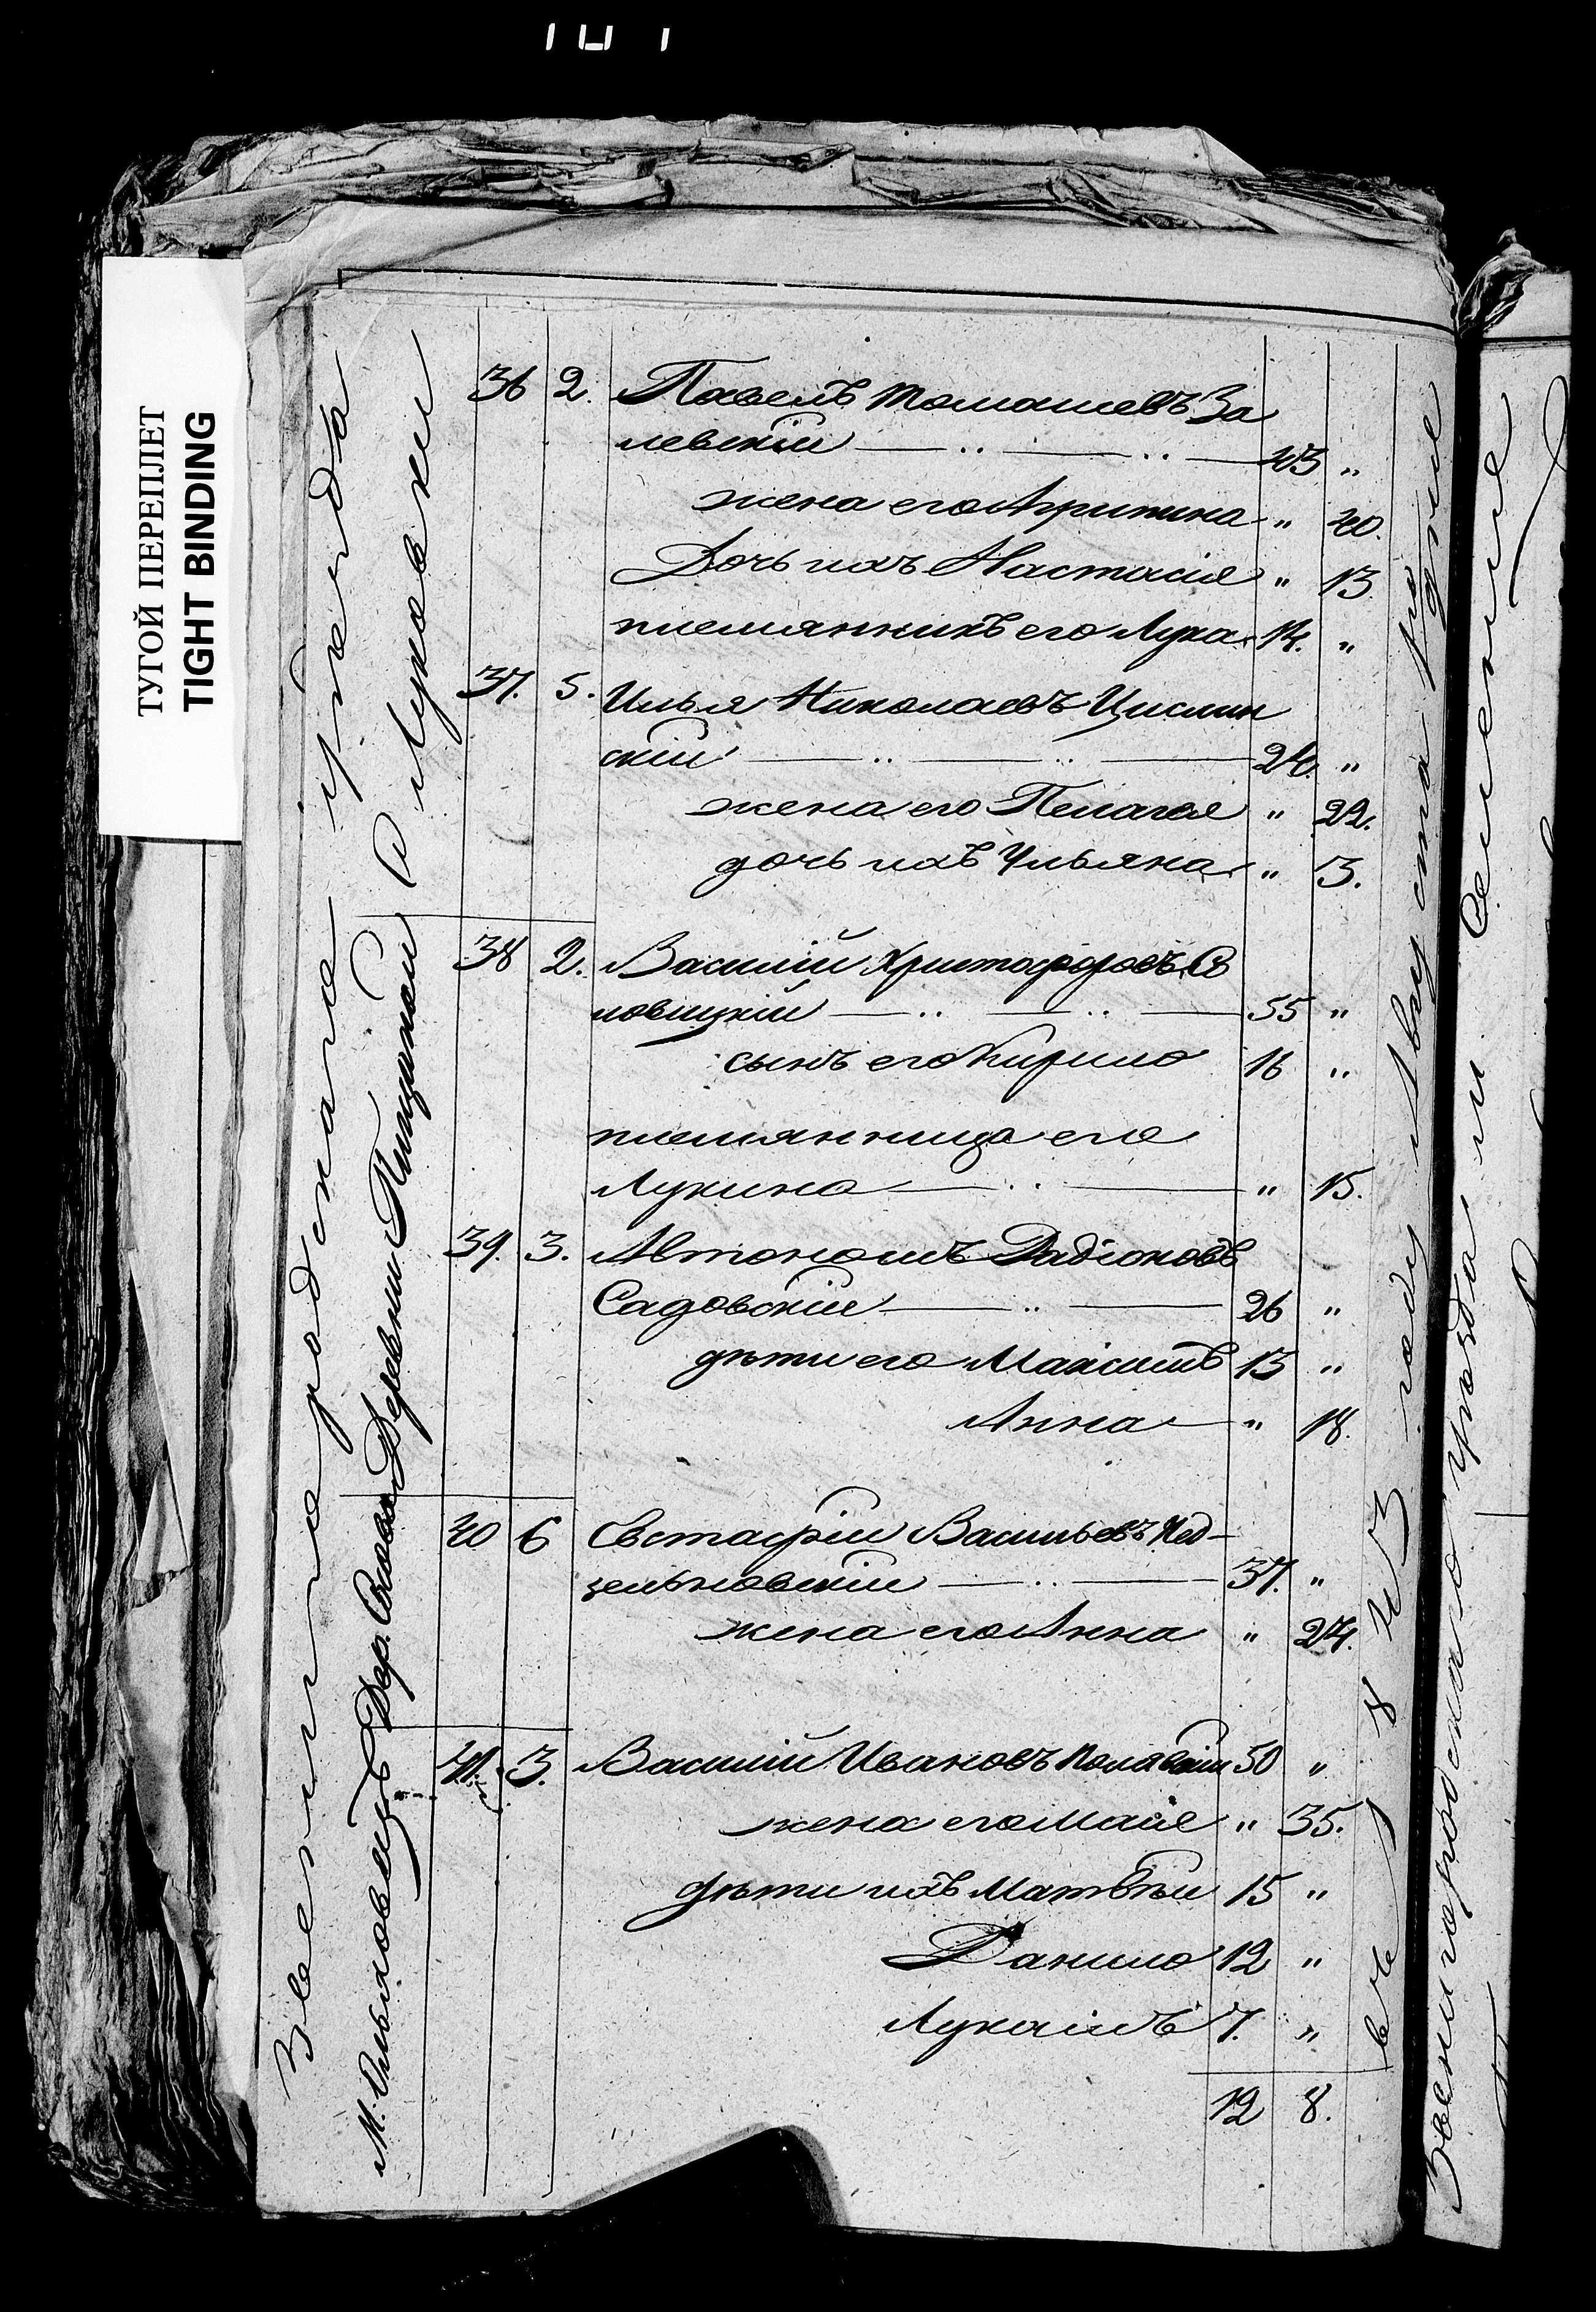 ТУГОЙ ПЕРЕПЛЕТ
TIGHT BINDING
Звенигородскаго уѣзда
С Лукавки
Деревни
Дер.
М. Ольховцъ
36 2. Павелъ Томашевъ За
левскій 43 „
жена его Агрипина „ 40.
Дочь ихъ Настасія „ 13
племянникъ его Лука 14. „
37. 5. Илья Николаевъ Цислин
скій 24. „
жена его Пелагея „ 22.
дочь ихъ Ульяна „ 3.
38 2. Василій Христофоровъ
новицкій 55 „
сынъ его Кирило 16 „
племянница его
Лукина „ 15.
39. 3. Автономъ Радіоновъ
Садовскій 26 „
дѣти его Максимъ 13 „
Анна „ 18.
40 6 Евстафій Васильевъ Нед-
зельковскій 37. „
жена его Анна „ 24.
41. 3. Василій Ивановъ 50 „
жена его Маія „ 35.
дѣти ихъ Матвѣй 15 „
Данило 12 „
Лукашъ 7. „
12 8.
1843 году Августа
Звенигородскаго уѣзда М. Селеніе